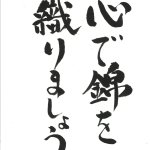 心で錦を
織りましょう